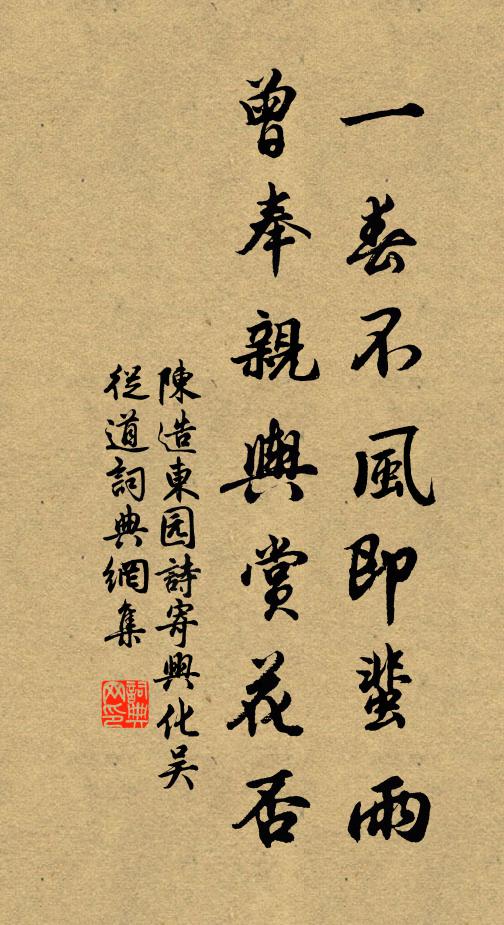 一春不風即蜚雨
曾奉親輿賞花否
陳造東园詩寄興化吴
從道詞典網集
詞典网印